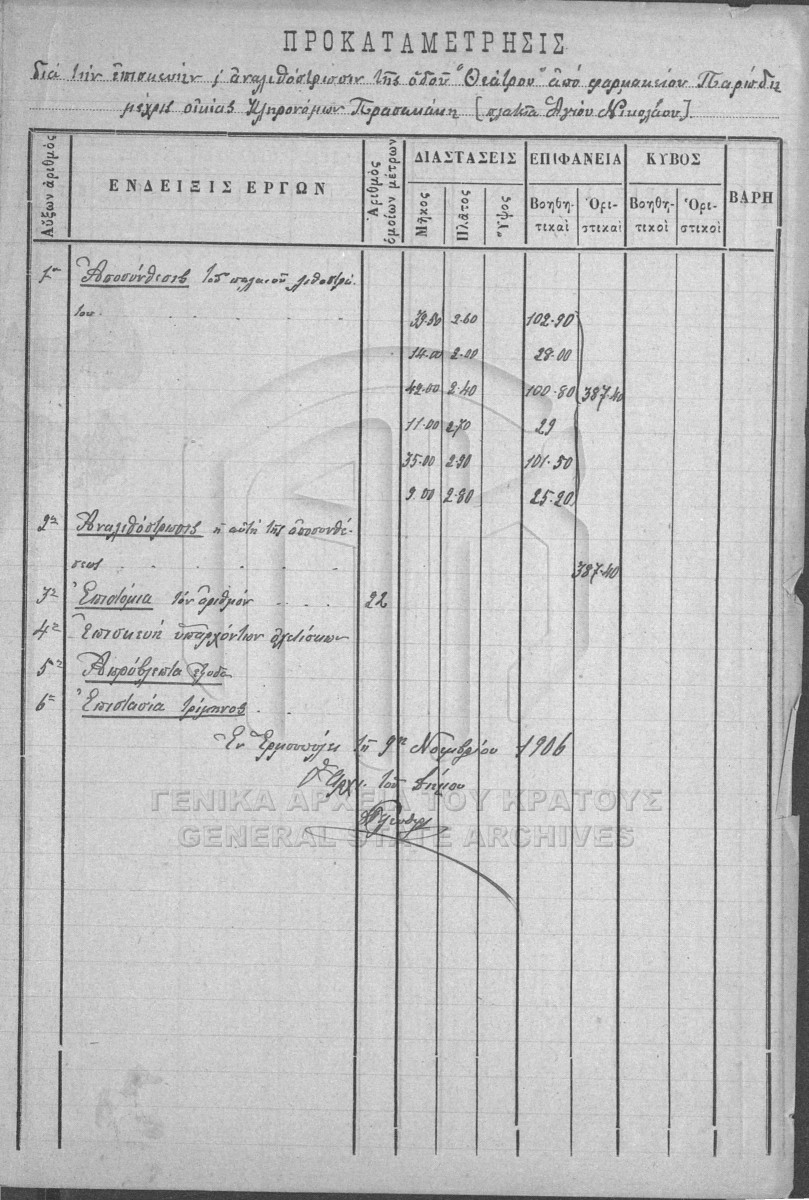 ΠΡΟΚΑΤΑΜΕΤΡΗΣΙΣ
διά την επισκευήν ἀναλιθόστρωσιν τῆς ὁδοῦ "Θεάτρου" ἀπό φαρμακείου
μέχρις οἰκίας Κληρονόμων [πλατεῖα Ἁγίου Νικολάου].
Αὔξων ἀριθμός ΕΝΔΕΙΞΙΣ ΕΡΓΩΝ Ἀριθμός ὁμοίων μέτρων ΔΙΑΣΤΑΣΕΙΣ ΕΠΙΦΑΝΕΙΑ ΚΥΒΟΣ ΒΑΡΗ
Μῆκος Πλάτος Ὕψος Βοηθητικαὶ Ὁριστικαὶ Βοηθητικοὶ Ὁριστικοὶ
1ον Ἀποσύνθεσις τοῦ παλαιοῦ λιθοστρώ-
του 39.50 2.60 102.90
14.00 2.00 28.00
42.00 2.40 100.80 387.40
11.00 2.70 29
35.00 2.90 101.50
9.00 2.80 25.20
2ον Ἀναλιθόστρωσις ἡ αὐτή τῆς ἀποσυνθέ-
σεως 387.40
3ον Ἐπιστόμια τόν ἀριθμόν 22
4ον Ἐπισκευή ὑπαρχόντων ὀχετίσκων
5ον Ἀπρόβλεπτα ἔξοδα
6ον Ἐπιστασία τρίμηνος
Ἐν Ἑρμουπόλει τῇ 9ῃ Νοεμβρίου 1906
Ὁ Ἀρχι. τοῦ Δήμου
ΓΕΝΙΚΑ ΑΡΧΕΙΑ ΤΟΥ ΚΡΑΤΟΥΣ
GENERAL STATE ARCHIVES